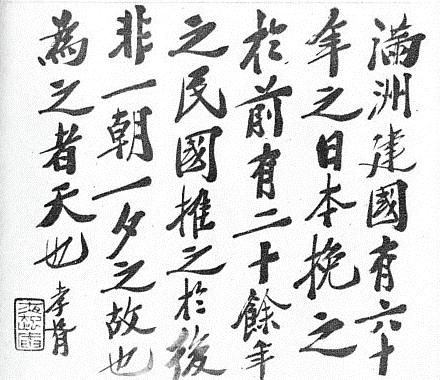 滿洲建國有六十
年之日本挽之
於前有二十餘年
之民國推之於後
非一朝一夕之故也
為之者天也 孝胥